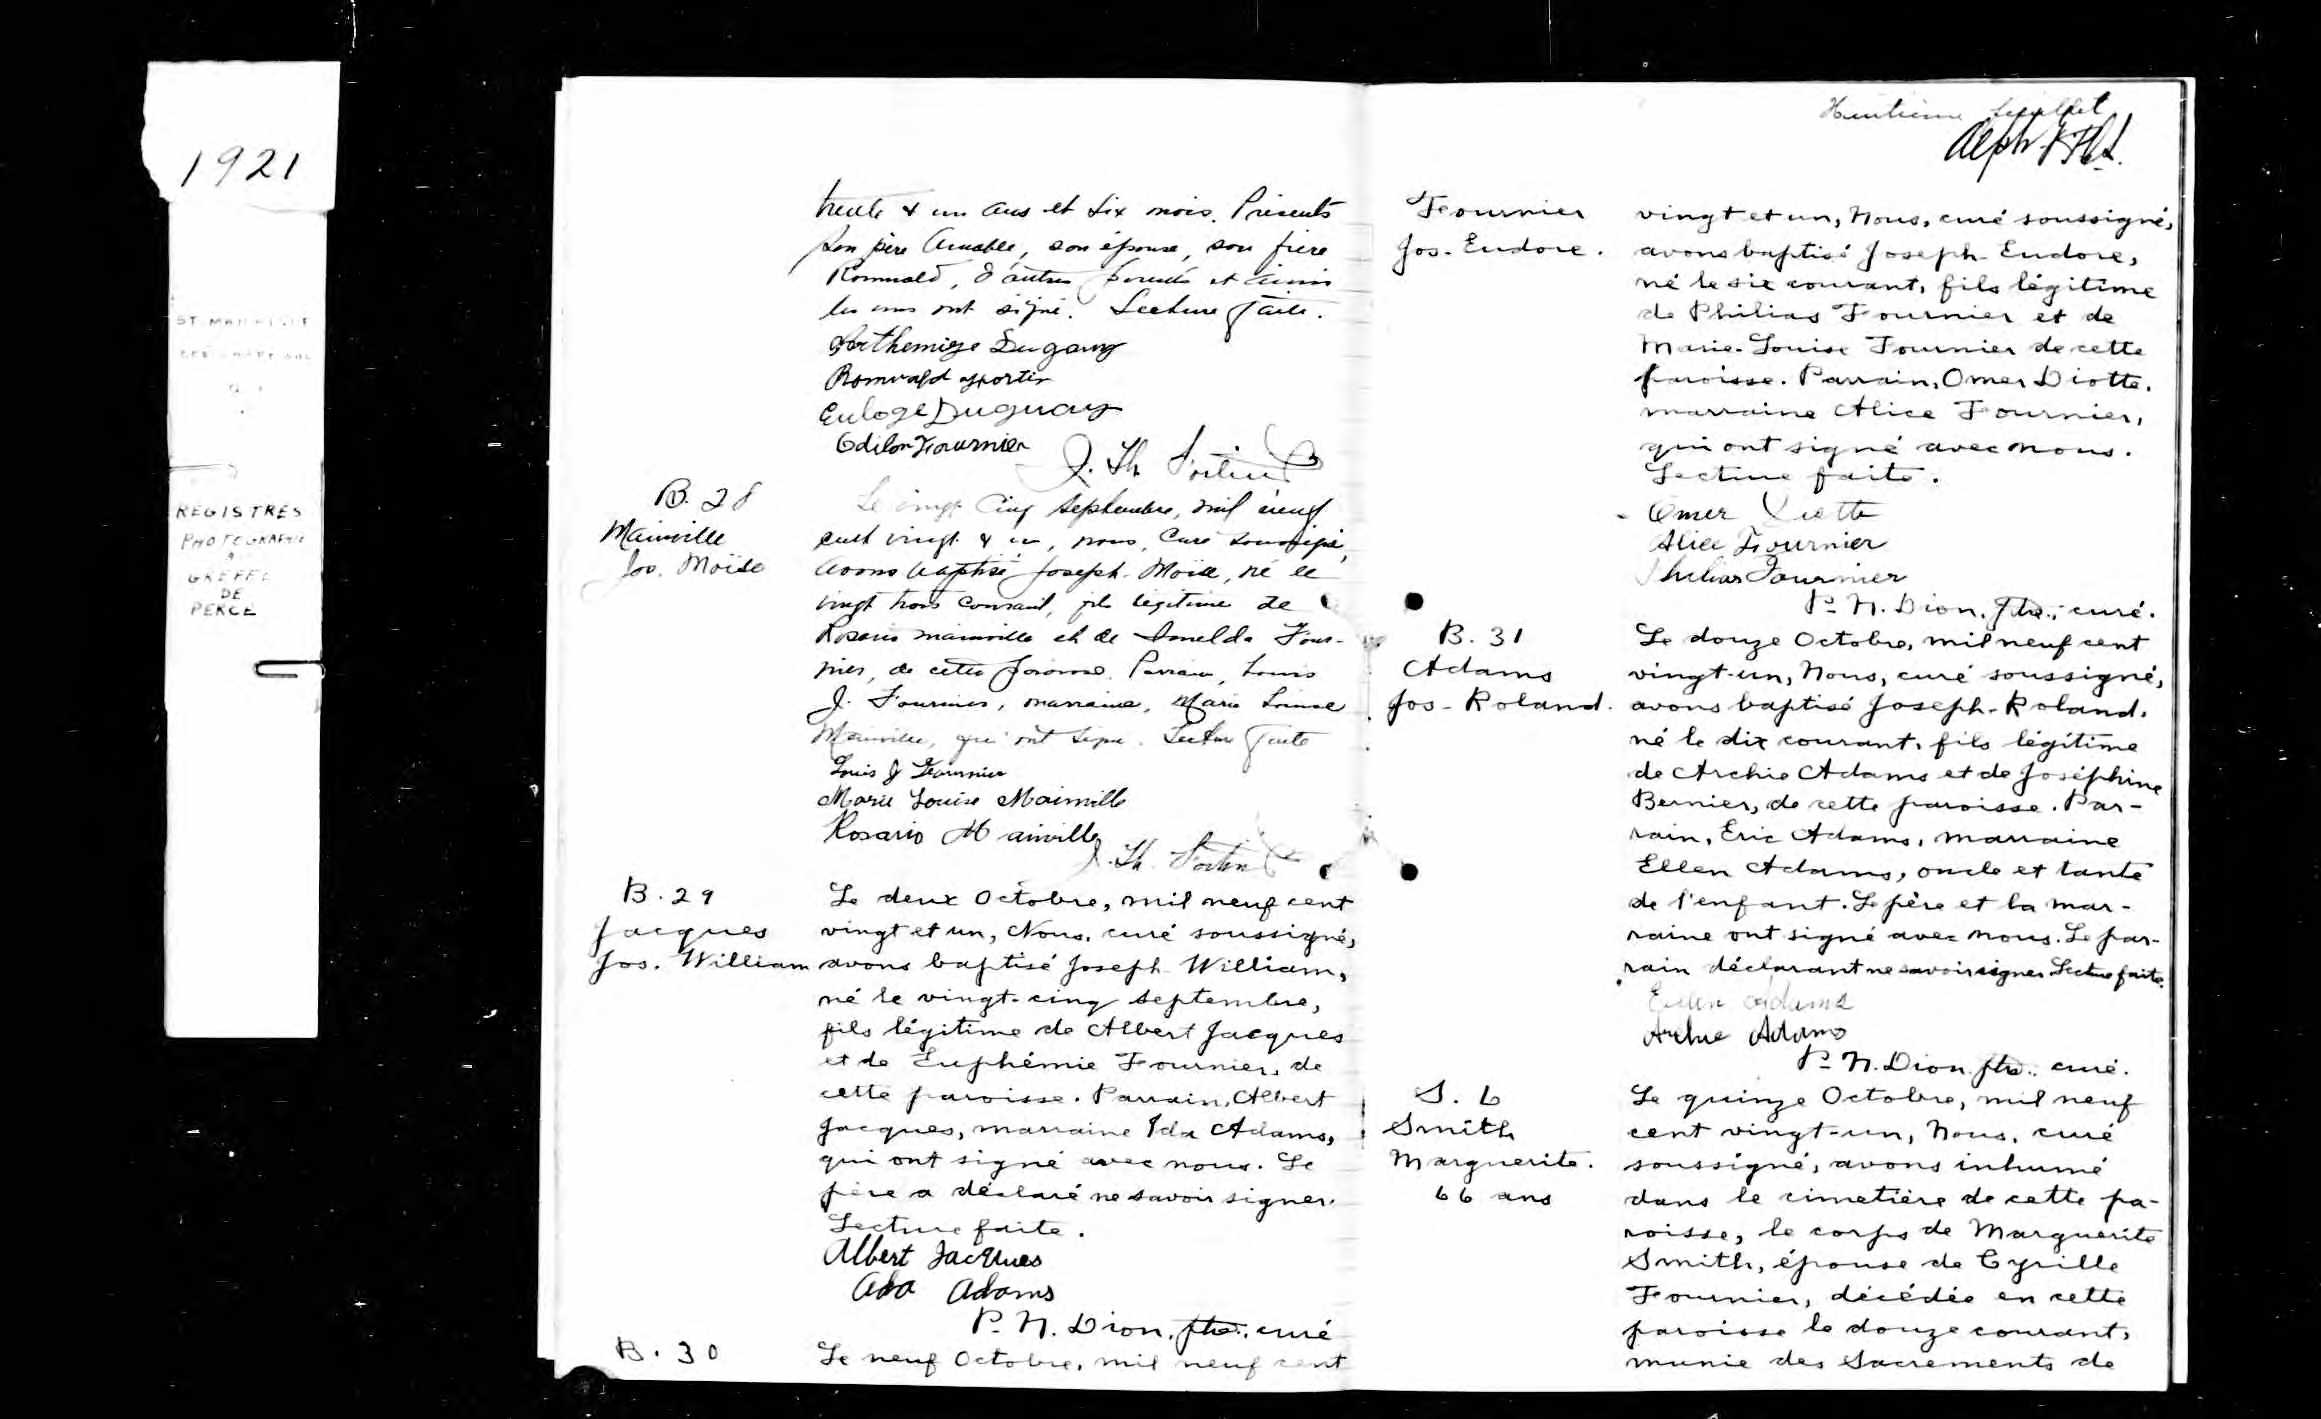 1921
REGISTRES
PHOTOGRAPHIE
GREFFE
DE
PERCÉ
trente & un ans et six mois. Présents
son père Amable, son épouse, son frère
Romuald, d'autres parents et amis
les uns ont signé. Lecture faite.
Parthemise Duguay
Romuald Fortin
Euloge Duguay
Odilon Fournier
J. Th. Fortin
B. 28
Mainville
Jos. Moïse
Le vingt cinq septembre, mil neuf
cent vingt & un, nous, curé soussigné,
avons baptisé Joseph-Moïse, né le
vingt trois courant, fils légitime de
Rosario Mainville et de Imelda Four-
nier, de cette paroisse. Parrain, Louis
J. Fournier, marraine, Marie Louise
Mainville, qui ont signé. Lecture faite
Louis J Fournier
Marie Louise Mainville
Rosario Mainville
J. Th. Fortin
B. 29
Jacques
Jos. William
Le deux Octobre, mil neuf cent
vingt et un, Nous, curé soussigné,
avons baptisé Joseph-William,
né le vingt-cinq septembre,
fils légitime de Albert Jacques
et de Euphémie Fournier, de
cette paroisse. Parrain, Albert
Jacques, marraine Ida Adams,
qui ont signé avec nous. Le
père a déclaré ne savoir signer.
Lecture faite.
Albert Jacques
Ada Adams
P. N. Dion, ptre., curé
B. 30
Le neuf Octobre, mil neuf cent
Huitième feuillet
Fournier
Jos. Eudore.
vingt et un, Nous, curé soussigné,
avons baptisé Joseph-Eudore,
né le six courant, fils légitime
de Philias Fournier et de
Marie-Louise Fournier de cette
paroisse. Parrain, Omer Diotte,
marraine Alice Fournier,
qui ont signé avec nous.
Lecture faite.
Omer Diotte
Alice Fournier
Philias Fournier
P. N. Dion, ptre., curé.
B. 31
Adams
Jos-Roland.
Le douze Octobre, mil neuf cent
vingt-un, Nous, curé soussigné,
avons baptisé Joseph-Roland,
né le dix courant, fils légitime
de Archie Adams et de Joséphine
Bernier, de cette paroisse. Par-
rain, Eric Adams, marraine
Ellen Adams, oncle et tante
de l'enfant. Le père et la mar-
raine ont signé avec nous. Le par-
rain déclarant ne savoir signer Lecture faite.
Ellen Adams
Archie Adams
P. N. Dion ptre., curé.
S. 6
Smith
Marguerite.
66 ans
Le quinze Octobre, mil neuf
cent vingt-un, Nous, curé
soussigné, avons inhumé
dans le cimetière de cette pa-
roisse, le corps de Marguerite
Smith, épouse de Cyrille
Fournier, décédée en cette
paroisse le douze courant,
munie des Sacrements de